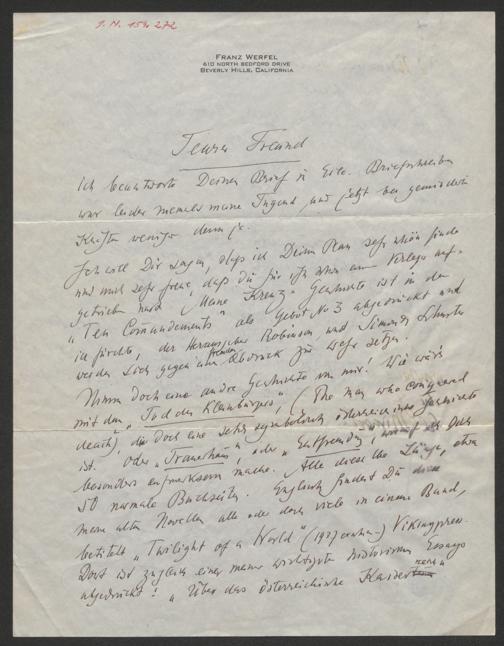 J. N. 159.272
FRANZ WERFEL
610 NORTH BEDFORD DRIVE
BEVERLY HILLS, CALIFORNIA
Teurer Freund
Ich beantworte Deinen Brief in Eile. Briefschreiben
war leider niemals meine Tugend und jetzt bei geminderten
Kräften weniger denn je.
Ich will Dir sagen, dass ich Deinen Plan sehr schön finde
und mich sehr freue, dass Du für ihn schon einen Verleger auf-
getrieben hast. Meine Kreuz-Geschichte ist in den
"Ten Commandements" als Gebot No 3 abgedruckt und
ich fürchte, der Herausgeber Robinson und Simon & Schuster
werden sich gegen einen fremden Abdruck zur Wehr setzen.
Nimm doch eine andre Geschichte von mir! Wie wär's
mit dem "Tod des Kleinbürgers", (The man who conquered
death), die doch eine sehr symbolisch österreichische Geschichte
ist. Oder "Trauerhaus", oder "Entfremdung" worauf ich Dich
besonders aufmerksam mache. Alle diese Länge, etwa
50 normale Buchseiten. Englisch findest Du diese
meine alten Novellen alle oder doch viele in einem Band,
betitelt "Twilight of a World" (1937) Vikingpress.
Dort ist zugleich einer meiner wichtigsten historischen Essays
abgedruckt! "Über das österreichische Kaiser